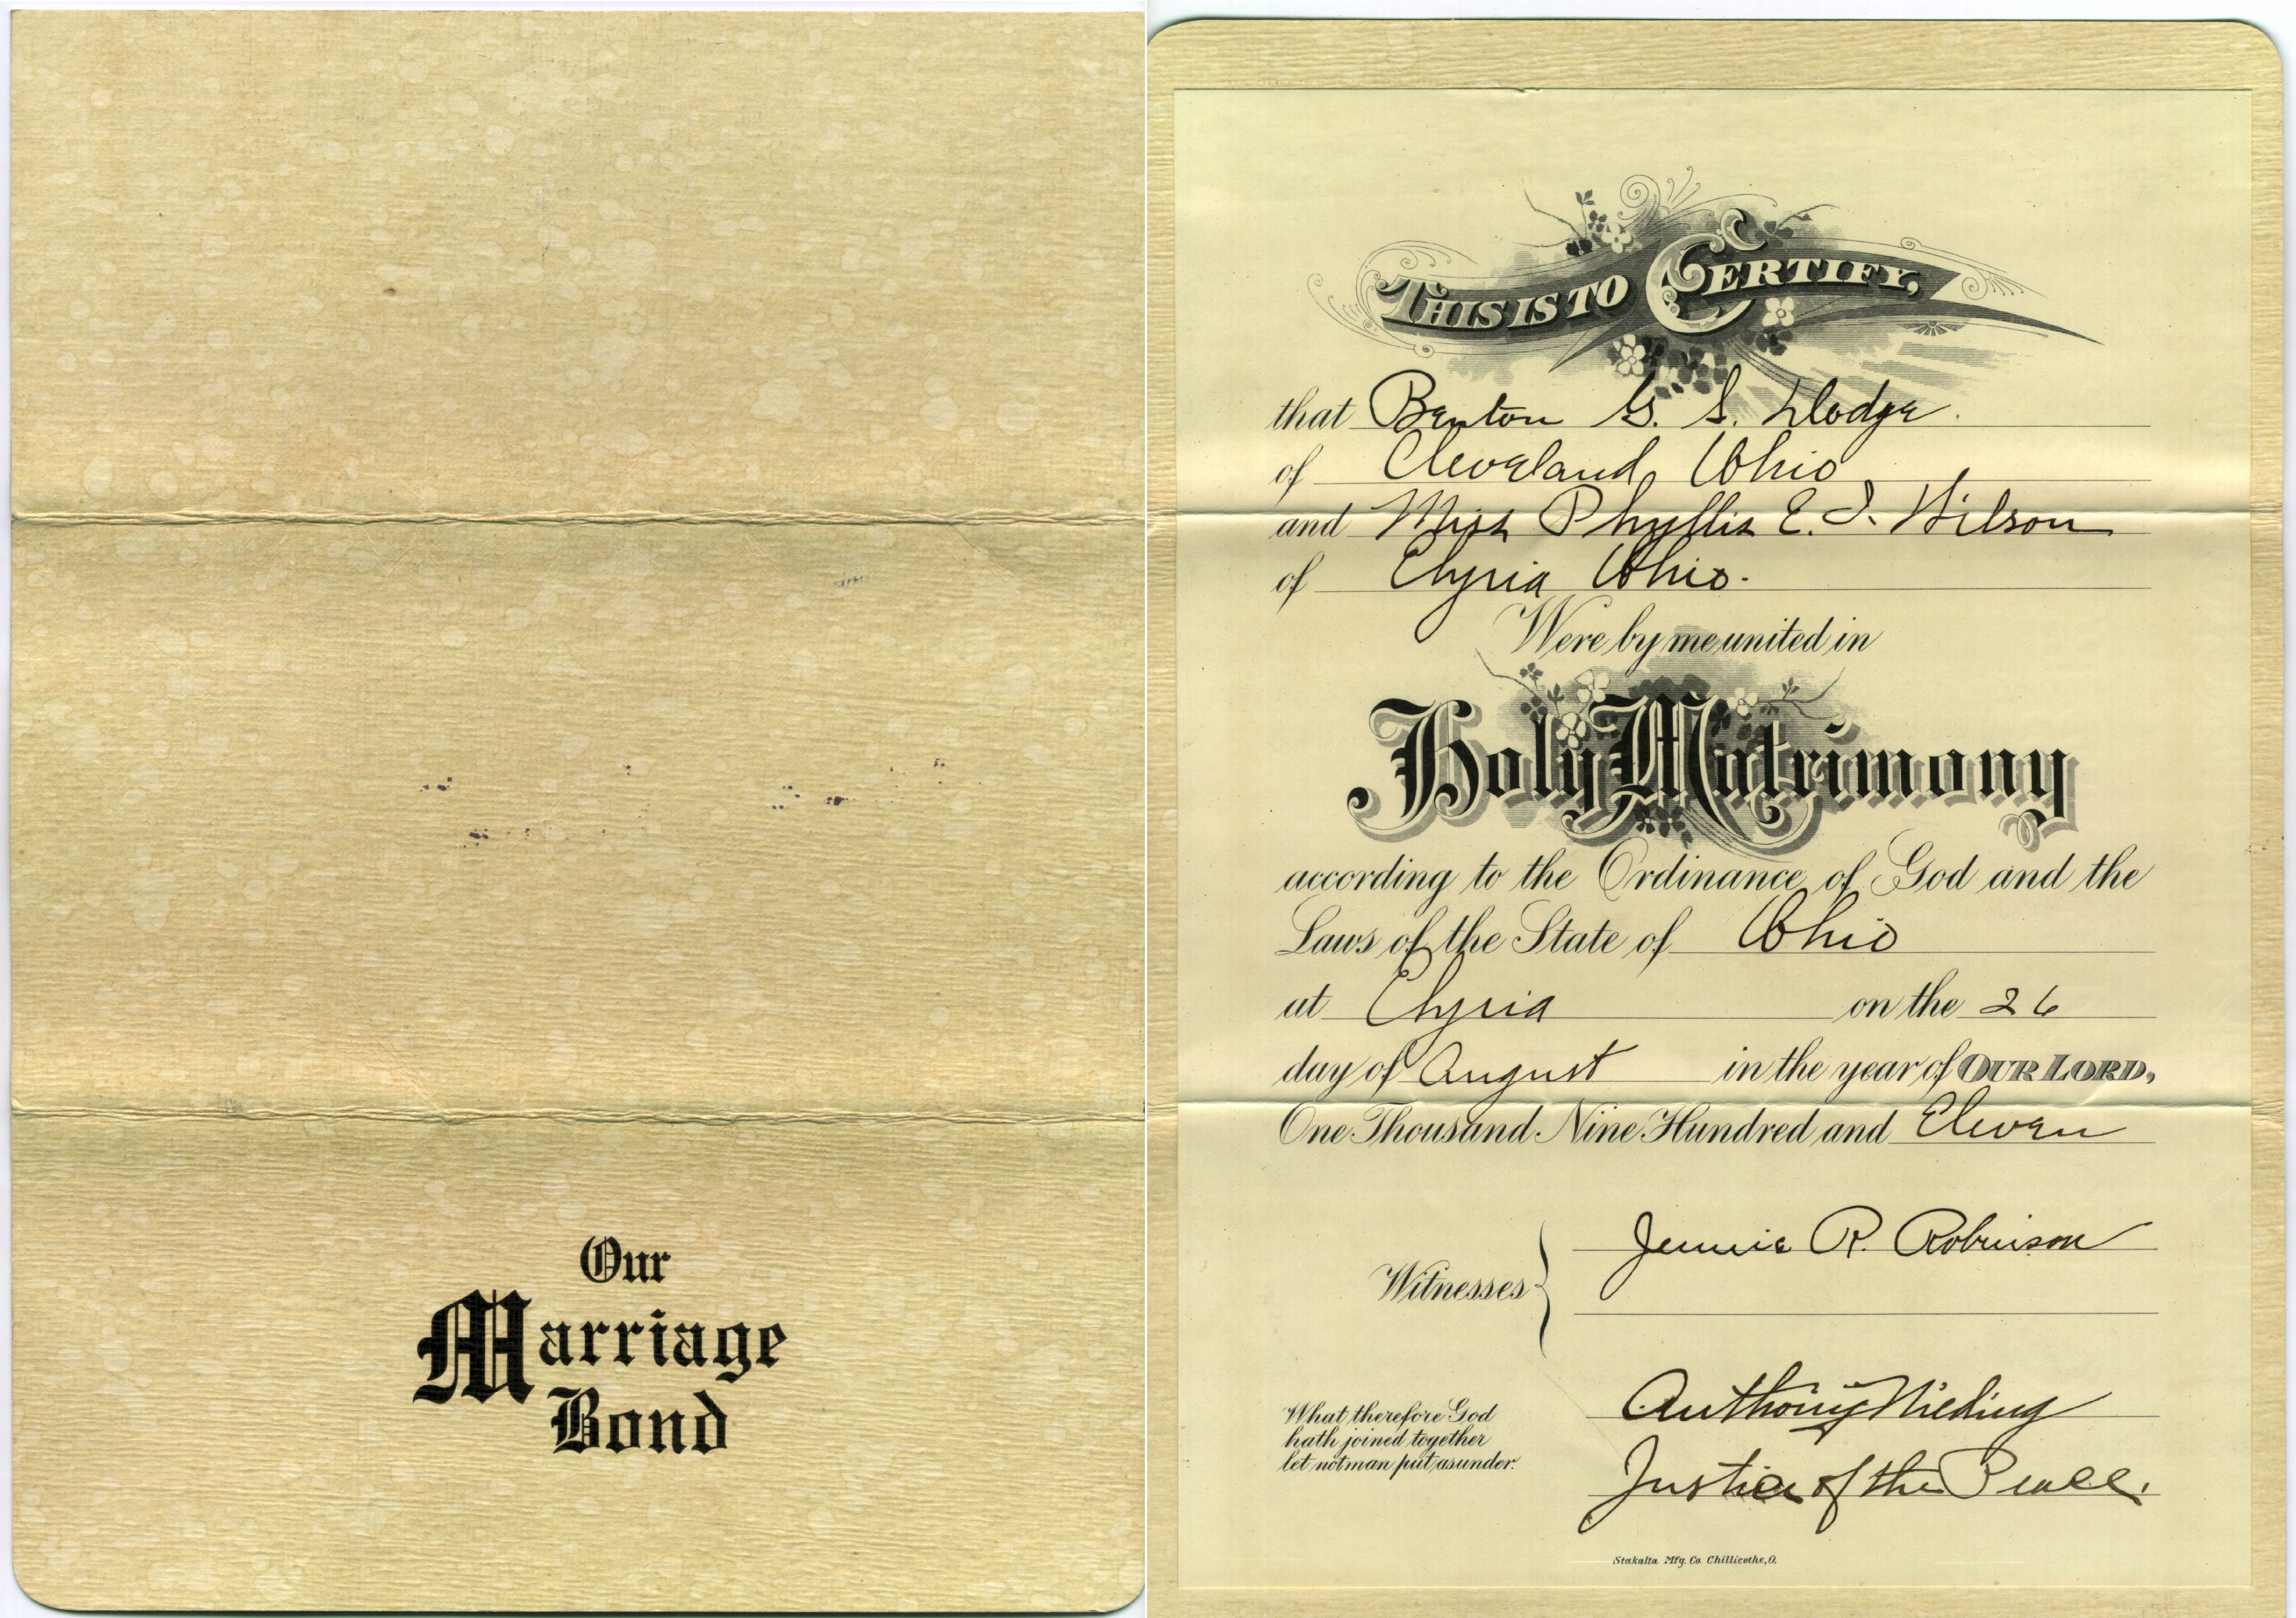 Our
Marriage
Bond
THIS IS TO CERTIFY,
that Benton G. S. Dodge.
of Cleveland, Ohio
and Miss Phyllis E. I. Wilson
of Elyria Ohio.
Were by me united in
Holy Matrimony
according to the Ordinance of God and the
Laws of the State of Ohio
at Elyria on the 26
day of August in the year of OUR LORD,
One Thousand Nine Hundred and Eleven
Jennie R. Robinson
Witnesses
Anthony Nieding
What therefore God
hath joined together
let not man put asunder.
Justice of the Peace.
Stakalta Mfg. Co. Chillicothe, O.